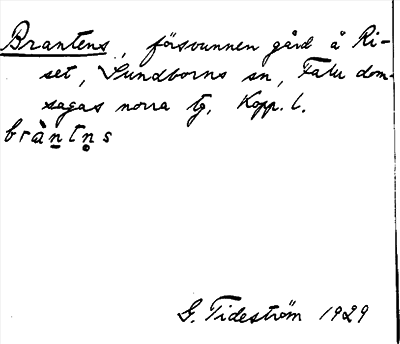 Brantens, försvunnen gård å Ri-
set, Sundborns sn, Falu dom-
sagas norra tg, Kopp. l.
bràn̲tn̥s
G. Tideström 1929